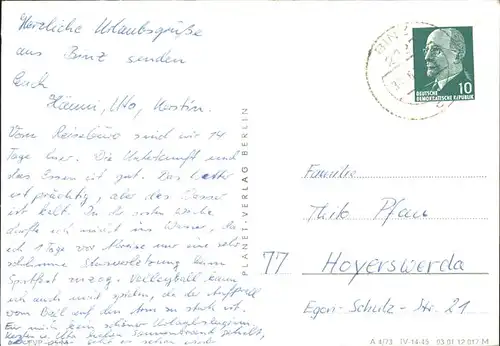 Herzliche Urlaubsgrüße
aus Binz senden
Euch
Hanni, Utto, Kerstin.
Vom Reisebüro sind wir 14
Tage hier. Die Unterkunft und
das Essen ist gut. Das Wetter
ist prächtig, aber das Wasser
ist kalt. In der ersten Woche
durfte ich nicht ins Wasser, da
ich 1 Tag vor Abreise mir eine sehr
schlimme Sturzverletzung beim
Sportfest zuzog. Volleyball kann
ich auch nicht spielen, da der
vom Beil auf den Arm zu stark ist.
Für mich kein schöner Urlaubsbeginn.
PLANET-VERLAG BERLIN
BINZ
10
DEUTSCHE
DEMOKRATISCHE REPUBLIK
Familie
Thilo Pfau
77 Hoyerswerda
Egon-Schulz-Str. 21
A 4/73 IV-14-45 03 01 12 017 M